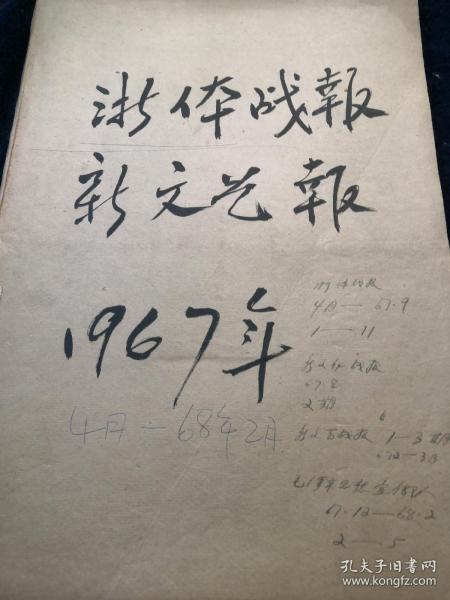 浙体战報
新文艺報
1967年
4月—68年2月
浙体战报
4月—67.9
1—11
新文艺战报
67.
2期
新文艺战报 1—3期
毛泽东思想宣传队
67.12—68.2
2—5
孔夫子旧书网
www.kongfz.com